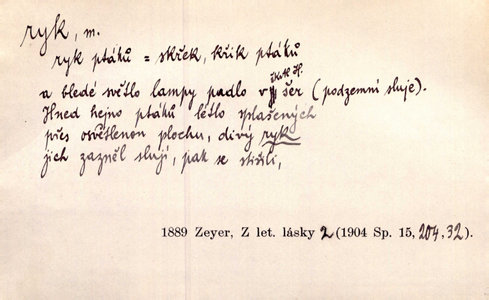 ryk, m.
ryk ptáků = skřek, křik ptáků
a bledé světlo lampy padlo v šer (podzemní sluje).
Hned hejno ptáků létlo splašených
přes osvětlenou plochu, divý ryk
jich zazněl slují, pak se skryli,
1889 Zeyer, Z let. lásky 2 (1904 Sp. 15, 204, 32).